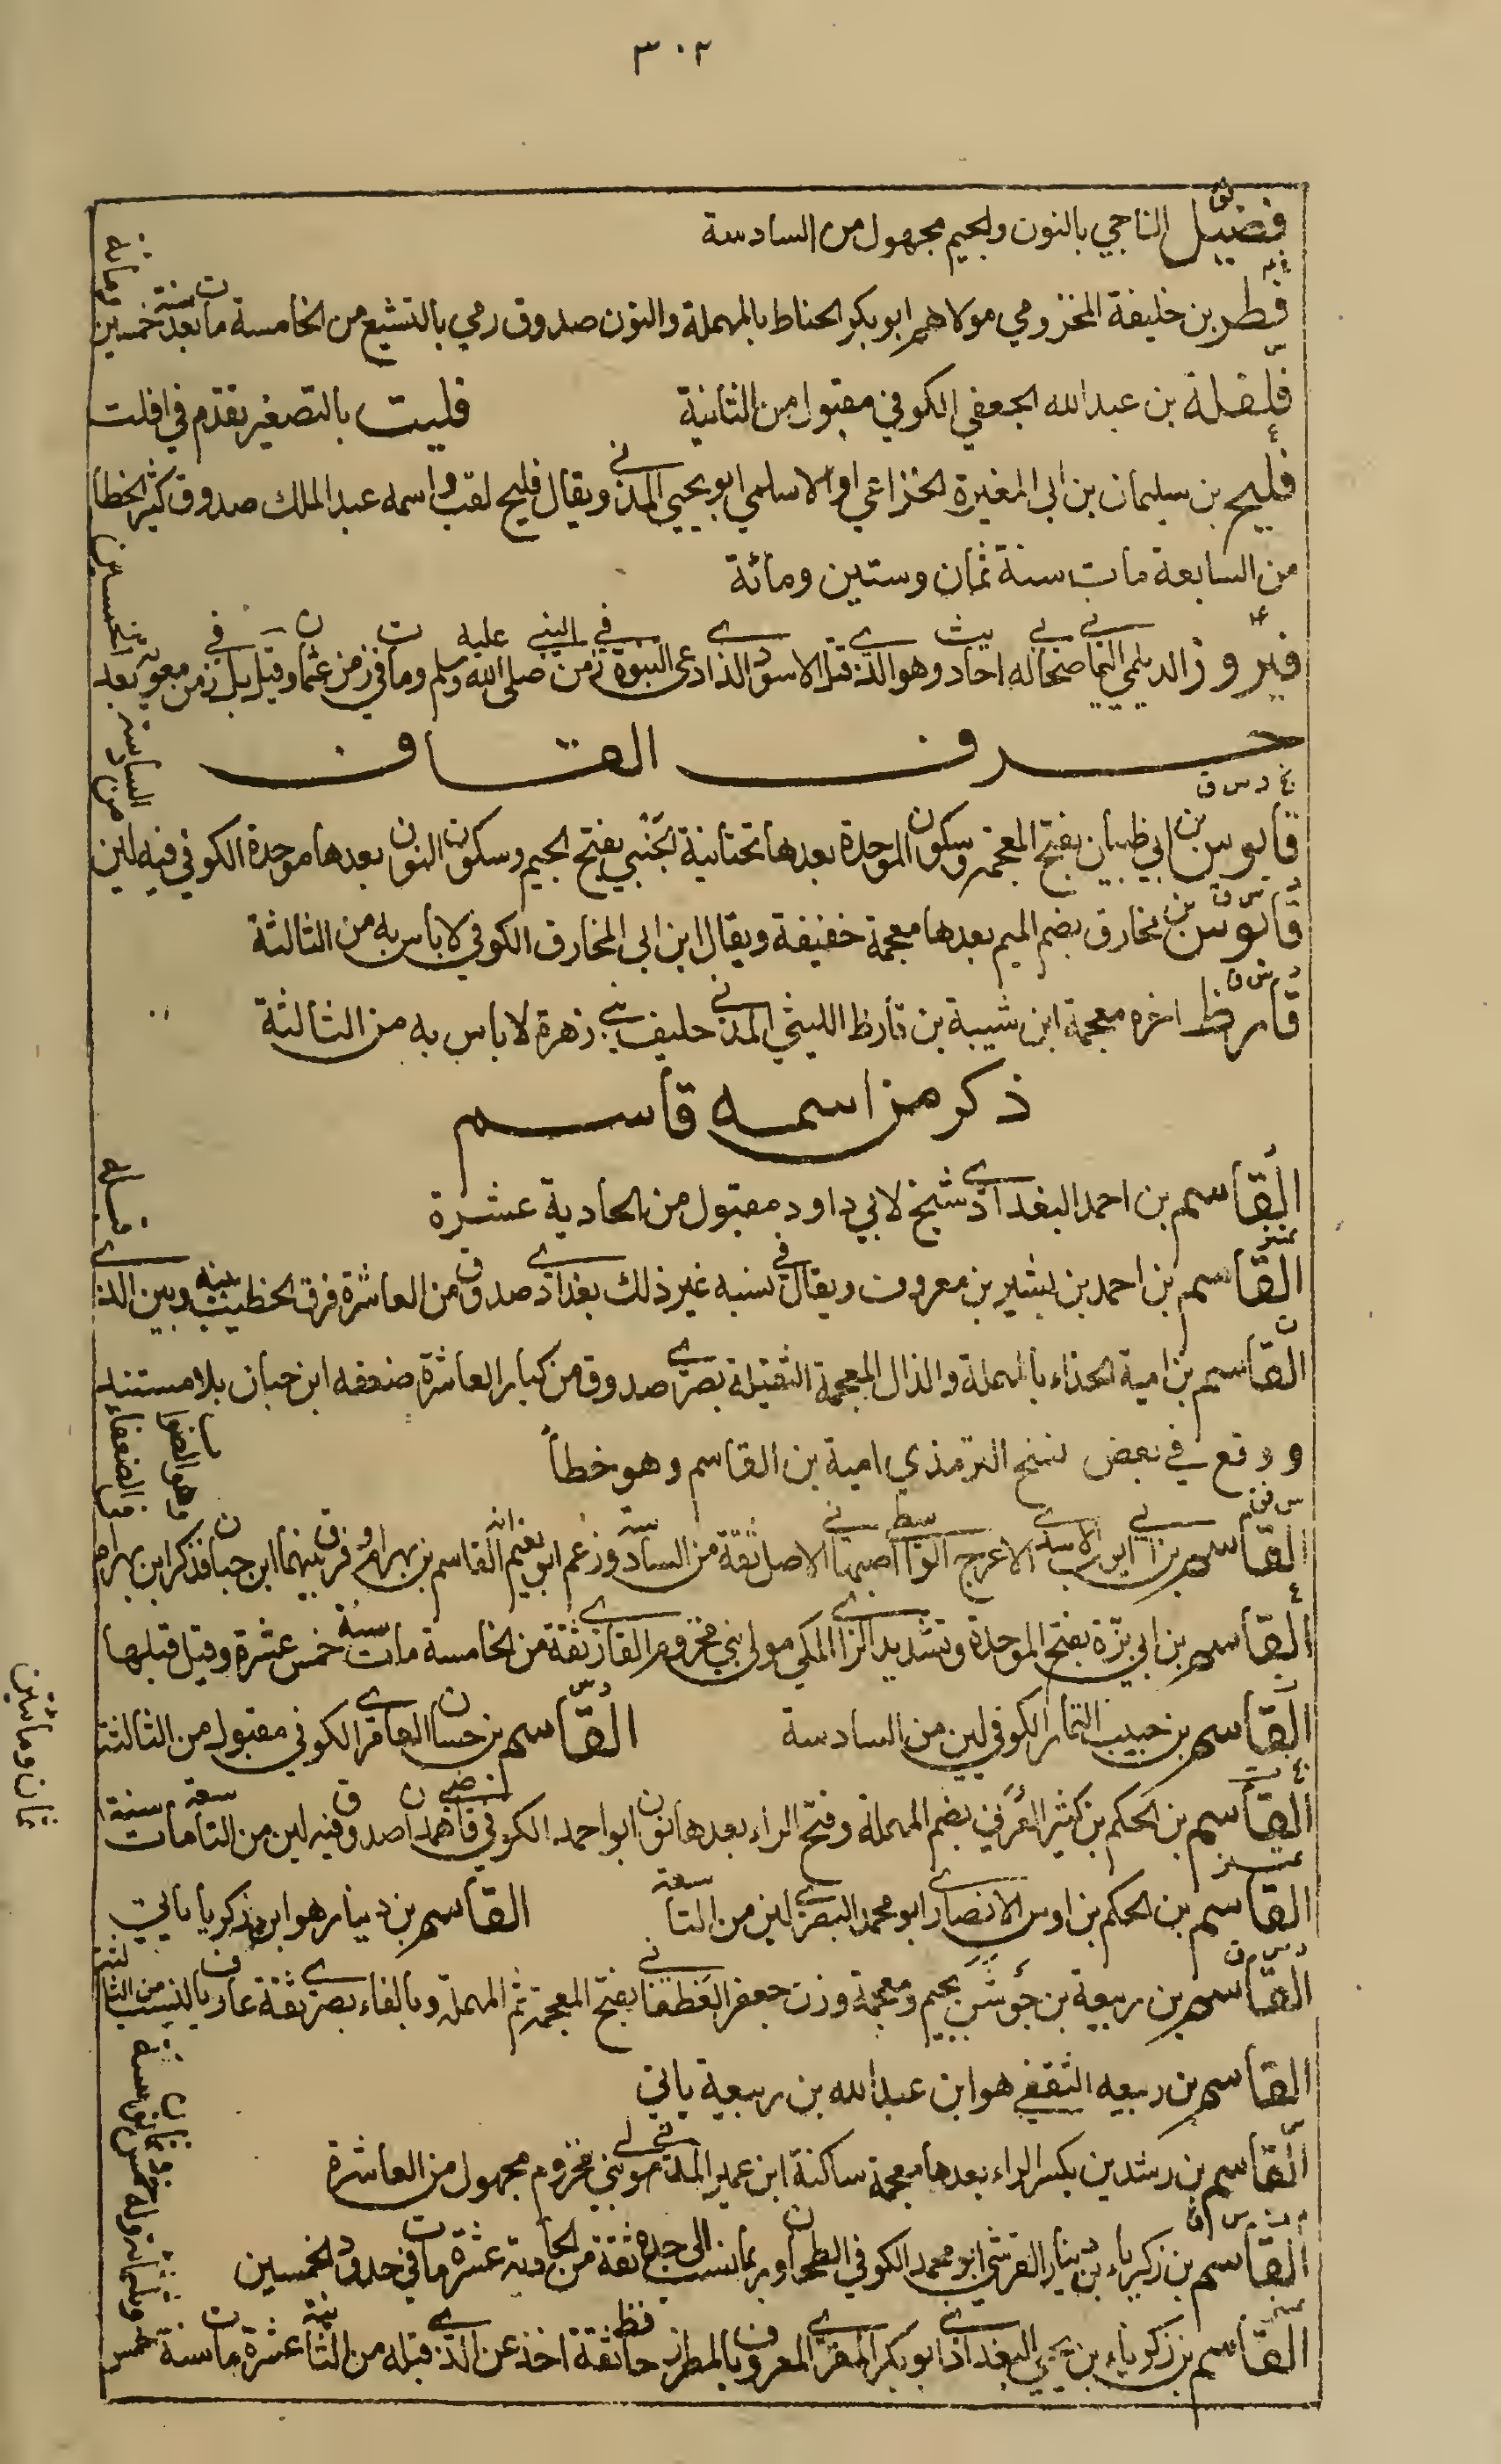 ٣٠٢
فق
فضيل الناجي بالنون والجيم مجهول من السادسة
خ ٤
فطر بن خليفة المخزومي مولاهم ابو بكر الحناط بالمهملة والنون صدوق رمي بالتشيع من الخامسة مات بعد سنة خمسين ومائة
س
فلفلة بن عبد الله الجعفي الكوفي مقبول من الثانية فليت بالتصغير تقدم في افلت
ع
فليح بن سليمان بن ابي المغيرة الخزاعي او الاسلمي ابو يحيى المدني ويقال فليح لقب واسمه عبد الملك صدوق كثير الخطأ
من السابعة مات سنة ثمان وستين ومائة
٤
فيروز الديلمي اليماني صحابي له احاديث وهو الذي قتل الاسود الذي ادعى النبوة في زمن النبي صلى الله عليه وسلم ومات في زمن عثمان وقيل بل في زمن معوية بعد الخمسين
حرف القاف
بخ د ت ق
قابوس بن ابي ظبيان بفتح المعجمة وسكون الموحدة بعدها تحتانية الجنبي بفتح الجيم وسكون النون بعدها موحدة الكوفي فيه لين من السادسة
د س ق
قابوس بن مخارق بضم الميم بعدها معجمة خفيفة ويقال ابن ابي المخارق الكوفي لا بأس به من الثالثة
قارظ اخره معجمة ابن شيبة بن قارظ الليثي المدني حليف بني زهرة لا بأس به من الثالثة
ذكر من اسمه قاسم
د
القاسم بن احمد البغدادي شيخ لابي داود مقبول من الحادية عشرة
تمييز
القاسم بن احمد بن بشير بن معروف ويقال في نسبه غير ذلك بغدادي صدوق من العاشرة فرق الخطيب بينه وبين الذي قبله
ت
القاسم بن امية الحذاء بالمهملة والذال المعجمة الثقيلة بصري صدوق من كبار العاشرة ضعفه ابن حبان بلا مستند
ووقع في بعض نسخ الترمذي امية بن القاسم وهو خطأ
القاسم بن ابي ايوب الاسدي الاعرج الواسطي اصبهاني الاصل ثقة من السادسة وزعم ابو نعيم انه القاسم بن بهرام وفرق بينهما ابن حبان فذكر ابن بهرام في الضعفاء وهو الصواب
ع
القاسم بن ابي بزة بفتح الموحدة وتشديد الزاي المكي مولى بني مخزوم القاري ثقة من الخامسة مات سنة خمس عشرة وقيل قبلها
ت
القاسم بن حبيب التمار الكوفي لين من السادسة د س القاسم بن حسان العامري الكوفي مقبول من الثالثة
القاسم بن الحكم بن كثير العرني بضم المهملة وفتح الراء بعدها نون ابو احمد الكوفي قاضي همدان صدوق وفيه لين من التاسعة مات سنة ثمان ومائتين
تمييز
القاسم بن الحكم بن اوس الانصاري ابو محمد البصري لين من التاسعة القاسم بن دينار هو ابن زكريا ياتي
د س ق
القاسم بن ربيعة بن جوشن بجيم ومعجمة وزن جعفر الغطفاني بفتح المعجمة ثم المهملة وبالفاء بصري ثقة عارف بالنسب من الثالثة
القاسم بن ربيعه الثقفي هو ابن عبد الله بن ربيعة ياتي
س
القاسم بن رشدين بكسر الراء بعدها معجمة ساكنة ابن عمير المدني مولى بني مخزوم مجهول من العاشرة
م ت س ق
القاسم بن زكرياء بن دينار القرشي ابو محمد الكوفي الطحان وربما نسب الى جده ثقة من الحادية عشرة مات في حدود الخمسين
تمييز
القاسم بن زكرياء بن يحيى البغدادي ابو بكر المقري المعروف بالمطرز حافظ ثقة اخذ عن الذي قبله من الثانية عشرة مات سنة خمس وثلثمائة وله خمس وثمانون سنة